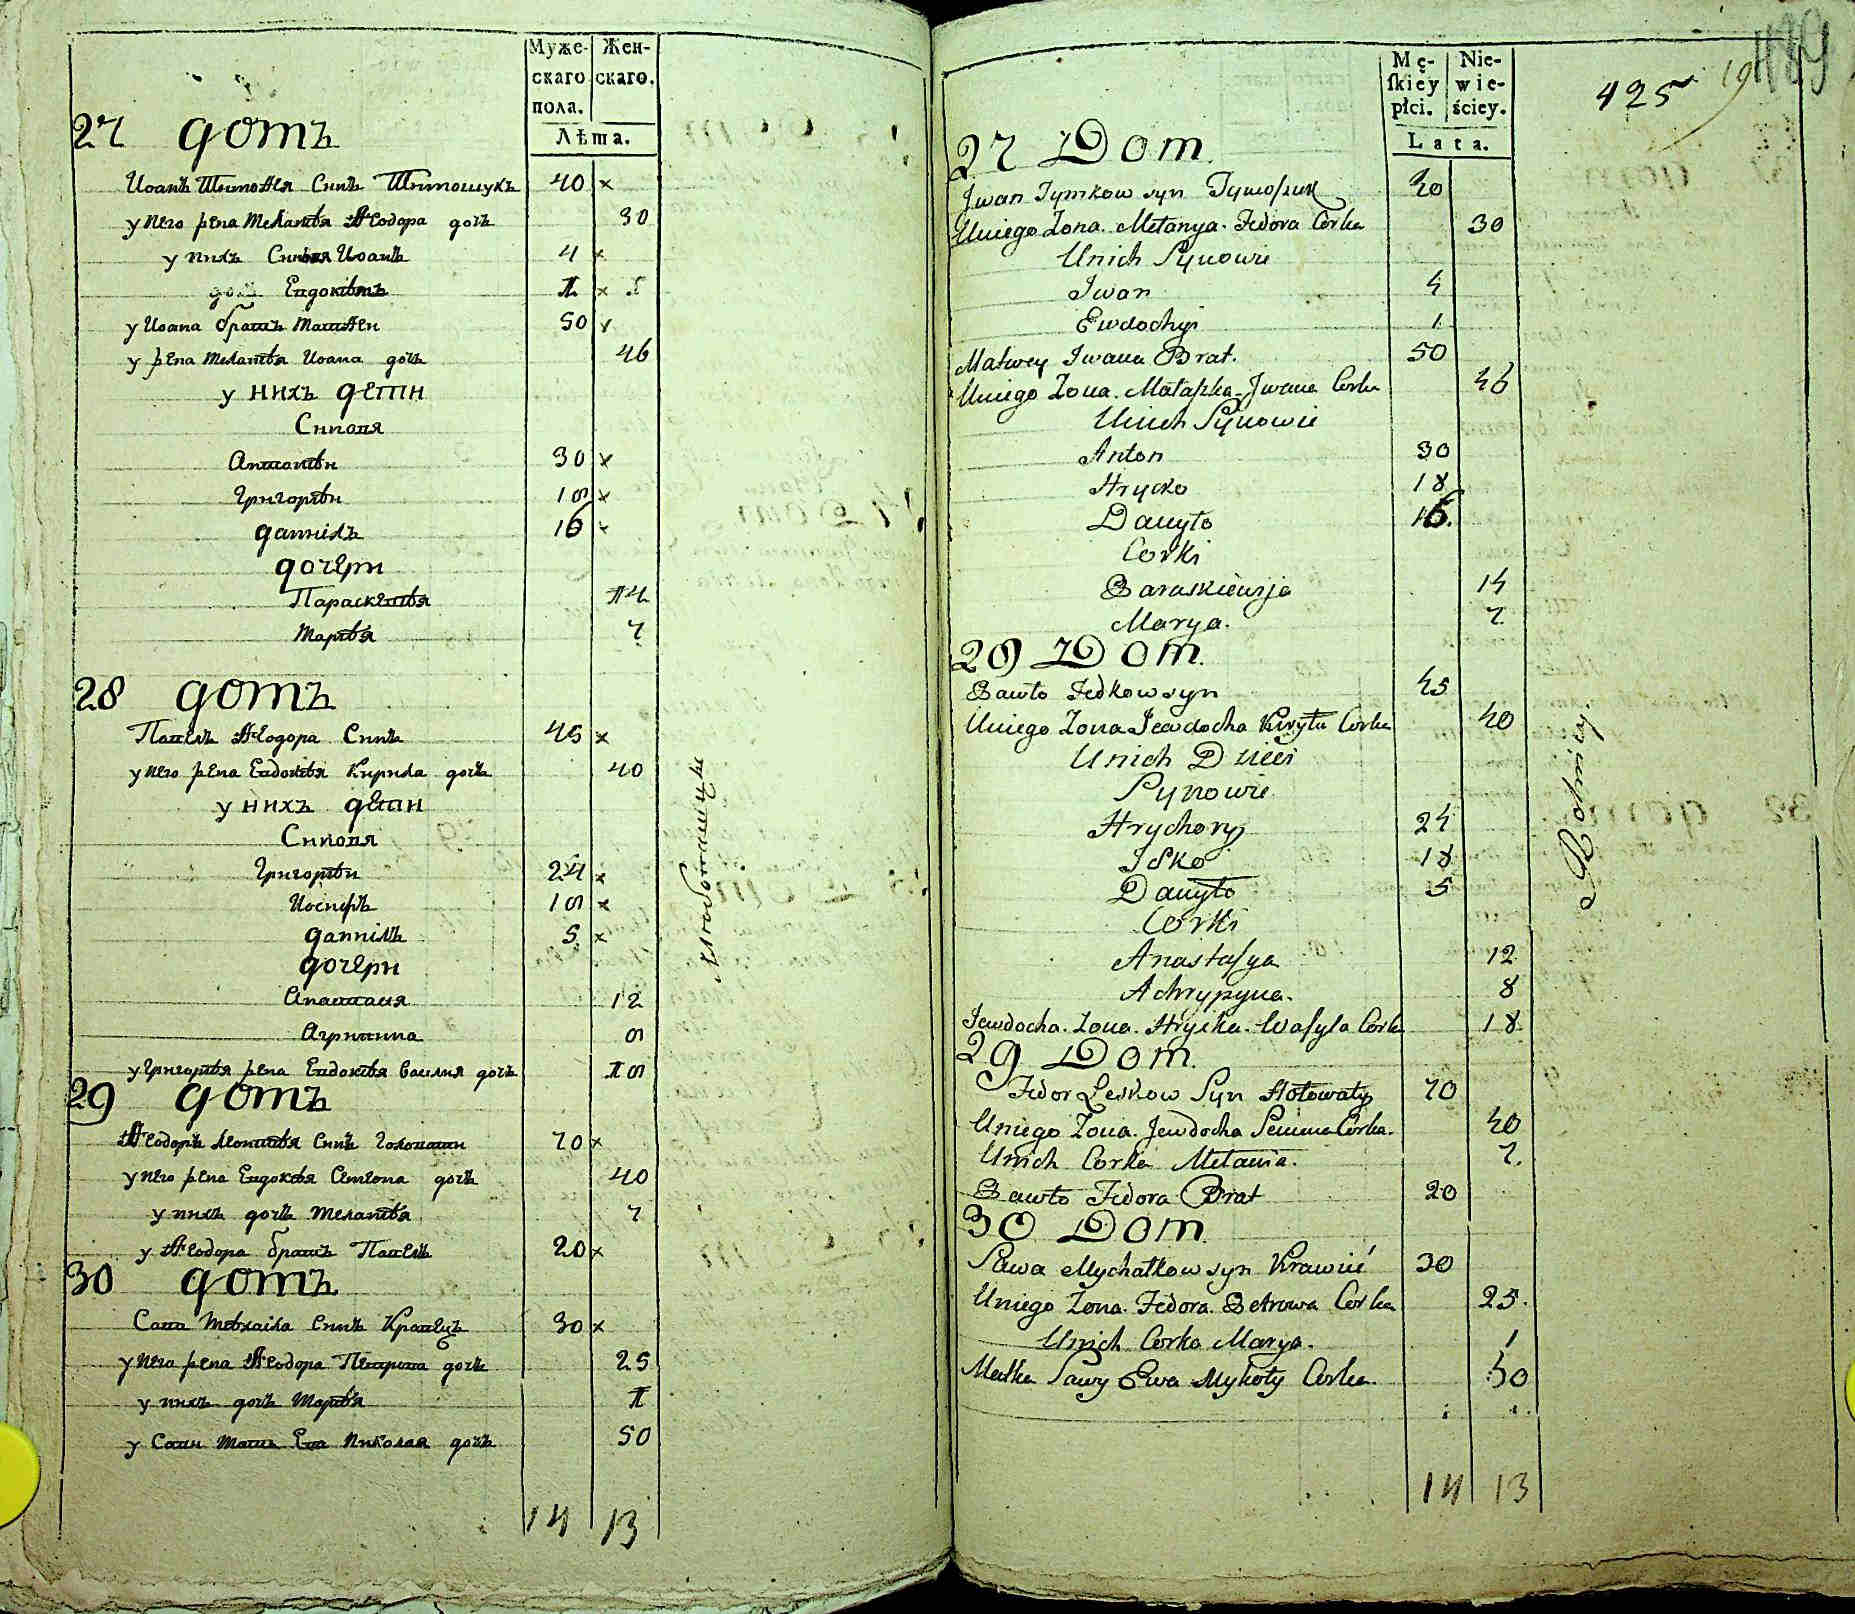 Муже-
скаго
пола.
Жен-
скаго.
Лѣта.
27 домъ
Иоанъ Тимофея Синъ Тимошукъ 40 ×
у него жена Меланія Феодора дочь 30
у нихъ Синовя Иоанъ 4 ×
Евдокіѣ 1 × 1
у Иоана братъ Матфеи 50 ×
у жена Меланія Иоана дочь 46
у нихъ дети
Синовя
Антоніи 30 ×
Григоріи 18 ×
Даниілъ 16 ×
дочери
Параскевія 14
Марія 7
28 домъ
Павелъ Феодора Синъ 45 ×
у него жена Евдокія Кирила дочь 40
у нихъ дети
Синовя
Григоріи 24 ×
Иосифъ 18 ×
Даниілъ 5 ×
дочери
Анастасия 12
Агрипина 8
у Григорія жена Евдокія Василия дочь 18
29 домъ
Феодоръ Леонтія Синъ Головати 70 ×
у него жена Евдокія Семиона дочь 40
у нихъ дочь Меланія 7
у Феодора братъ Павелъ 20 ×
30 домъ
Сава Михаіла Синъ Кравецъ 30 ×
у него жена Феодора Петрова дочь 25
у нихъ дочь Марія 1
у Сави мать Ева Николая дочь 50
14 13
Mę-
ſkiey
płci.
Nie-
wie-
ściey.
Lata.
425
19
489
27 Dom.
Jwan Tymkow syn Tymoſzuk 40
Uniego Zona. Mełanya. Fedora Corka 30
Unich Synowie
Jwan 4
Ewdochya 1
Matwey Jwana Brat. 50
Uniego Zona. Małaſzka Jwana Corka 46
Unich Synowie
Anton 30
Hrycko 18
Danyło 16.
Corki
Paraskiewja 14
Marya. 7
29 Dom.
Pawło Fedkow syn 45
Uniego Zona Jewdocha Kiryła Corka 40
Unich Dzieci
Synowie
Hrychory 24
Jsko 18
Danyło 5
Corki
Anastaſya 12
Achrypyna. 8
Jewdocha. Zona. Hryćka. Waſyla Corka 18
29 Dom.
Fedor Leskow Syn Hołowaty 70
Uniego Zona. Jewdocha Semena Corka. 40
Unich Corka Mełania. 7.
Pawło Fedora Brat 20
30 Dom.
Sawa Mychałkow syn Krawiec 30
Uniego Zona. Fedora. Petrowa Corka 25.
Unich Corka Marya. 1
Matka Sawy Ewa Mykoły Corka. 50
14 13
Rolnicy